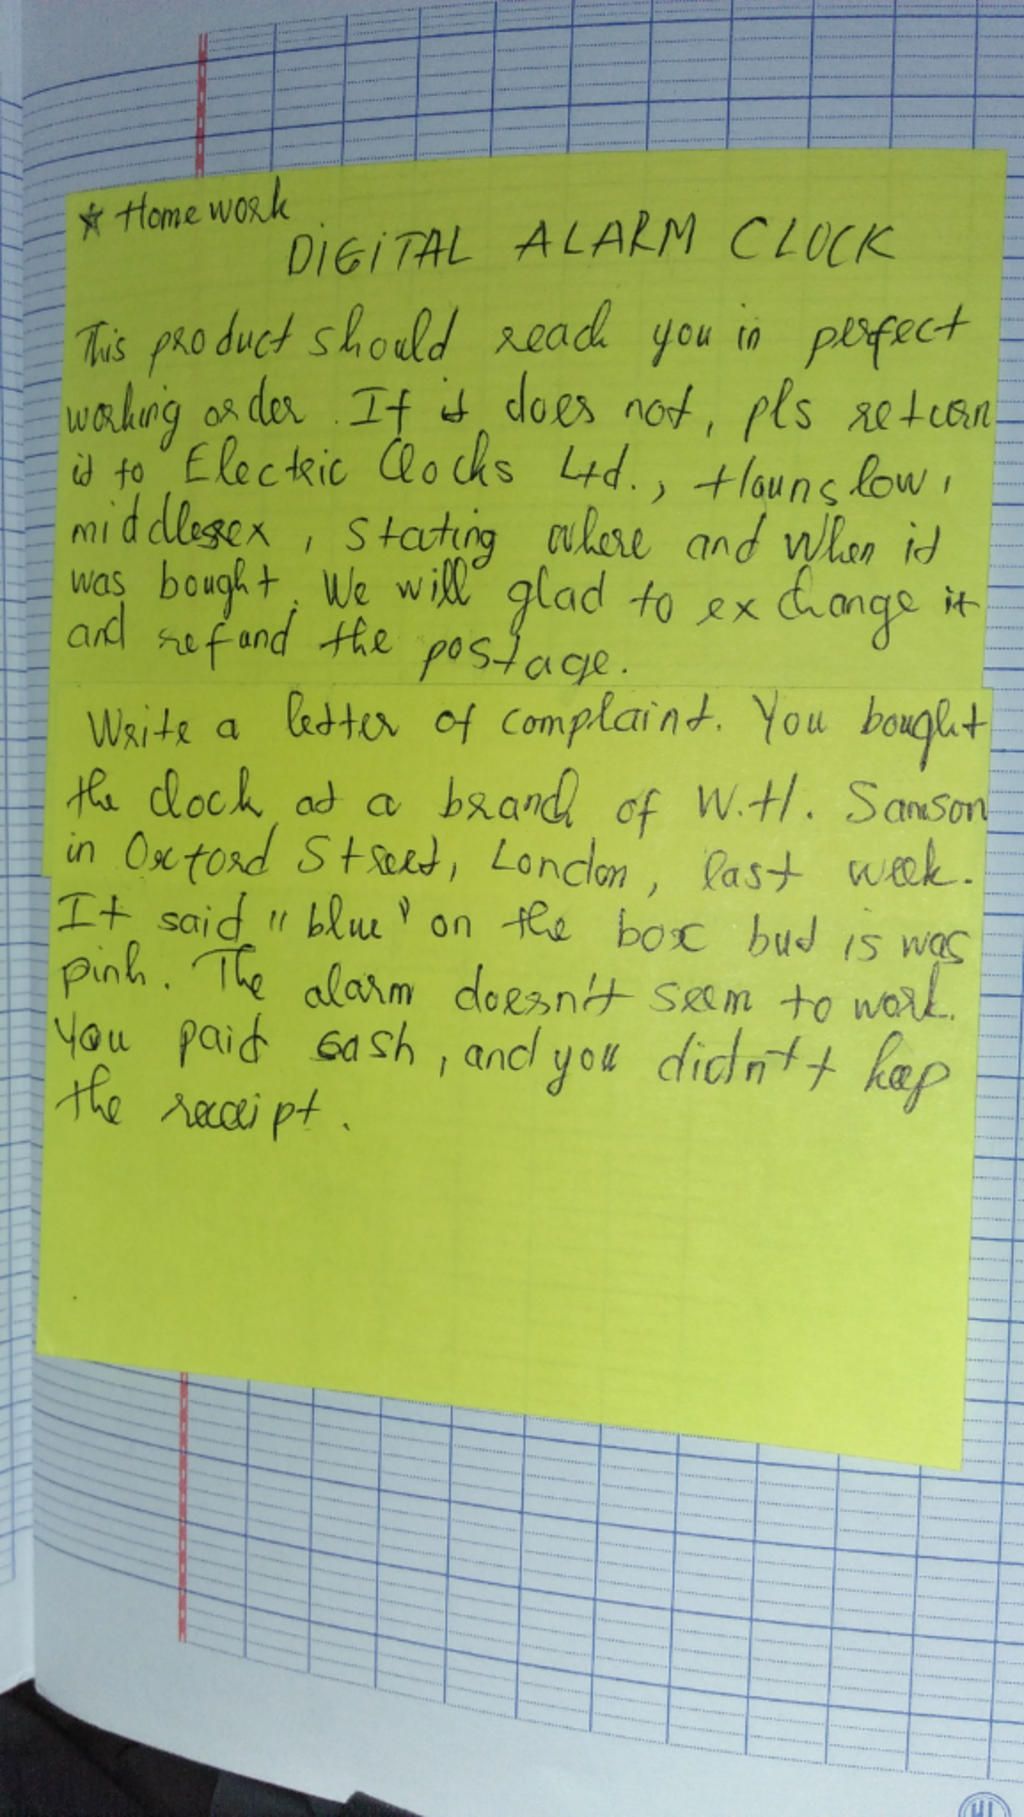 * Homework
DIGITAL ALARM CLOCK
This product should reach you in perfect
working order. If it does not, pls return
it to Electric Clocks Ltd., Hounslow,
middlesex, stating where and when it
was bought. We will glad to exchange it
and refund the postage.
Write a letter of complaint. You bought
the clock at a branch of W.H. Samson
in Oxford Street, London, last week.
It said "blue" on the box but is was
pink. The alarm doesn't seem to work.
You paid cash, and you didn't keep
the receipt.